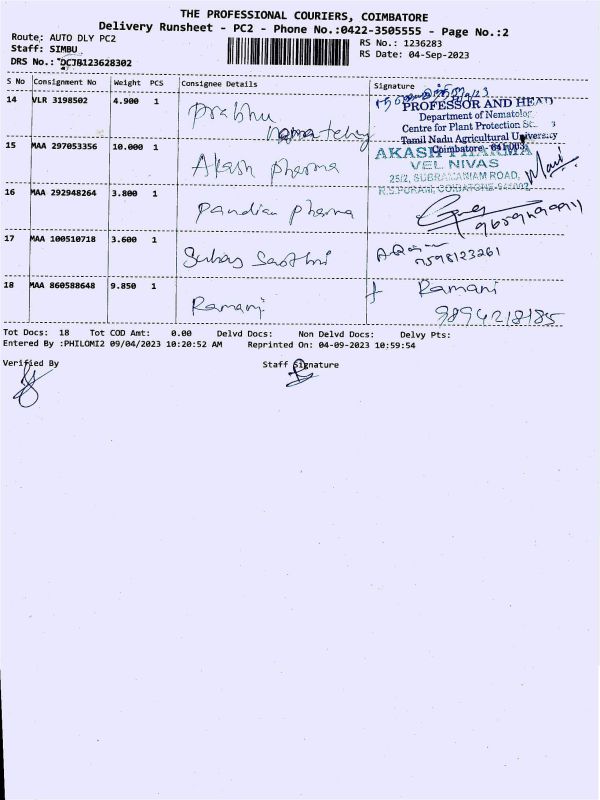 THE PROFESSIONAL COURIERS, COIMBATORE
Delivery Runsheet - PC2 - Phone No.:0422-3505555 - Page No.:2
Route: AUTO DLY PC2
Staff: SIMBU
DRS No.: DCJB123628302
RS No.: 1236283
RS Date: 04-Sep-2023
S No Consignment No Weight PCS Consignee Details Signature
14 VLR 3198502 4.900 1 Prabhu
PROFESSOR AND HEAD
Department of Nematology
Centre for Plant Protection
Tamil Nadu Agricultural University
Coimbatore - 641003
15 MAA 297053356 10.000 1 Akash pharma
AKASH PHARMA
VEL NIVAS
25/2, SUBRAMANIAM ROAD,
R.S.PURAM, COIMBATORE-641002
16 MAA 292948264 3.800 1 Pandian pharma
17 MAA 100510718 3.600 1
7598123261
18 MAA 860588648 9.850 1 Ramani Ramani
9894218185
Tot Docs: 18 Tot COD Amt: 0.00 Delvd Docs: Non Delvd Docs: Delvy Pts:
Entered By :PHILOMI2 09/04/2023 10:20:52 AM Reprinted On: 04-09-2023 10:59:54
Verified By Staff Signature